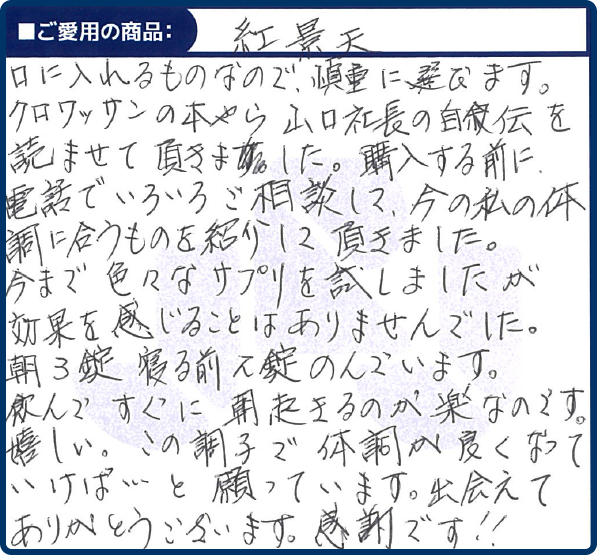 ■ご愛用の商品: 紅景天
口に入れるものなので、慎重に選びます。
クロワッサンの本やら 山口社長の自叙伝を
読ませて頂きました。購入する前に、
電話でいろいろご相談して、今の私の体
調に合うものを紹介して頂きました。
今まで色々なサプリを試しましたが
効果を感じることはありませんでした。
朝3錠 寝る前2錠のんでいます。
飲んですぐに朝起きるのが楽なのです。
嬉しい。この調子で体調が良くなって
いけば…と願っています。出会えて
ありがとうございます。感謝です!!